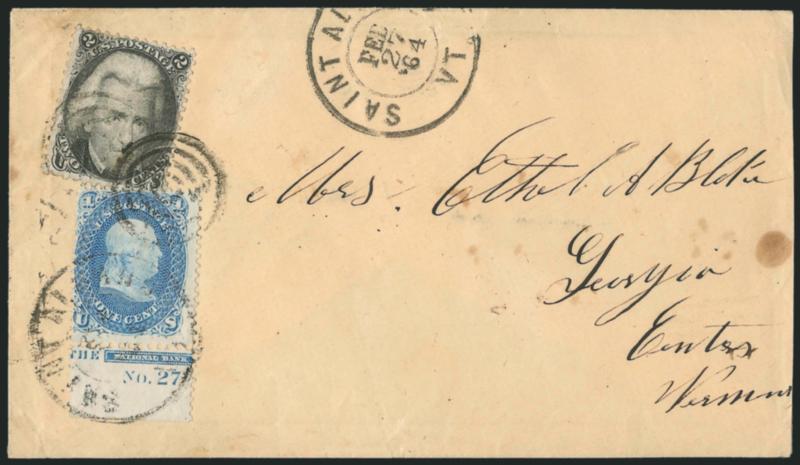 2 U.S. POSTAGE 2
TWO CENTS
SAINT AL VT.
FEB
27
'64
Mrs. Ethel A Blake
Georgia
Center
Vermon
1 U.S. POSTAGE 1
U ONE CENT S
THE NATIONAL BANK
No. 27